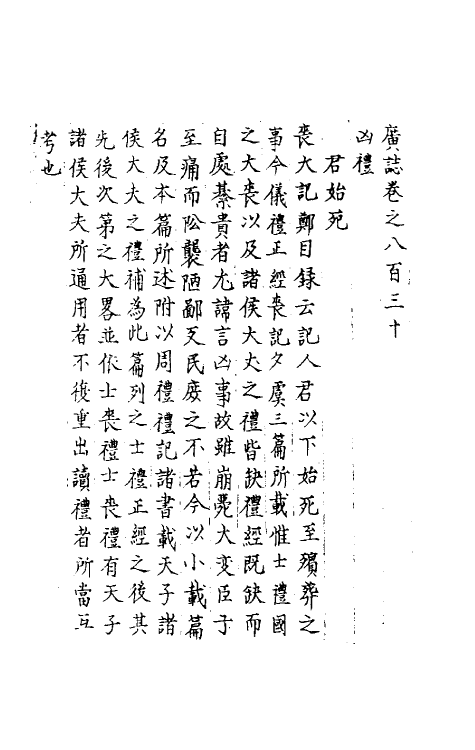 廣誌卷之八百三十
凶禮
君始死
喪大記鄭目録云記人君以下始死至殯葬之
事今儀禮正經喪記夕虞三篇所載惟士禮國
之大喪以及諸侯大夫之禮皆缺禮經既缺而
自處綦貴者尤諱言凶事故雖崩薨大变臣子
至痛而訟襲陋鄙反民庶之不若今以小載篇
名及本篇所述附以周禮禮記諸書載天子諸
侯大夫之禮補為此篇列之士禮正經之後其
先後次第之大畧並依士喪禮士喪禮有天子
諸侯大夫所通用者不復重出讀禮者所當互
考也